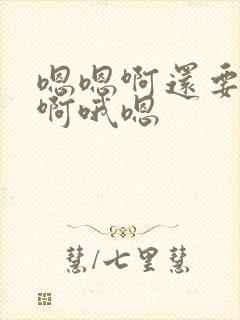 嗯嗯啊還要
啊哦嗯
慧/七里慧